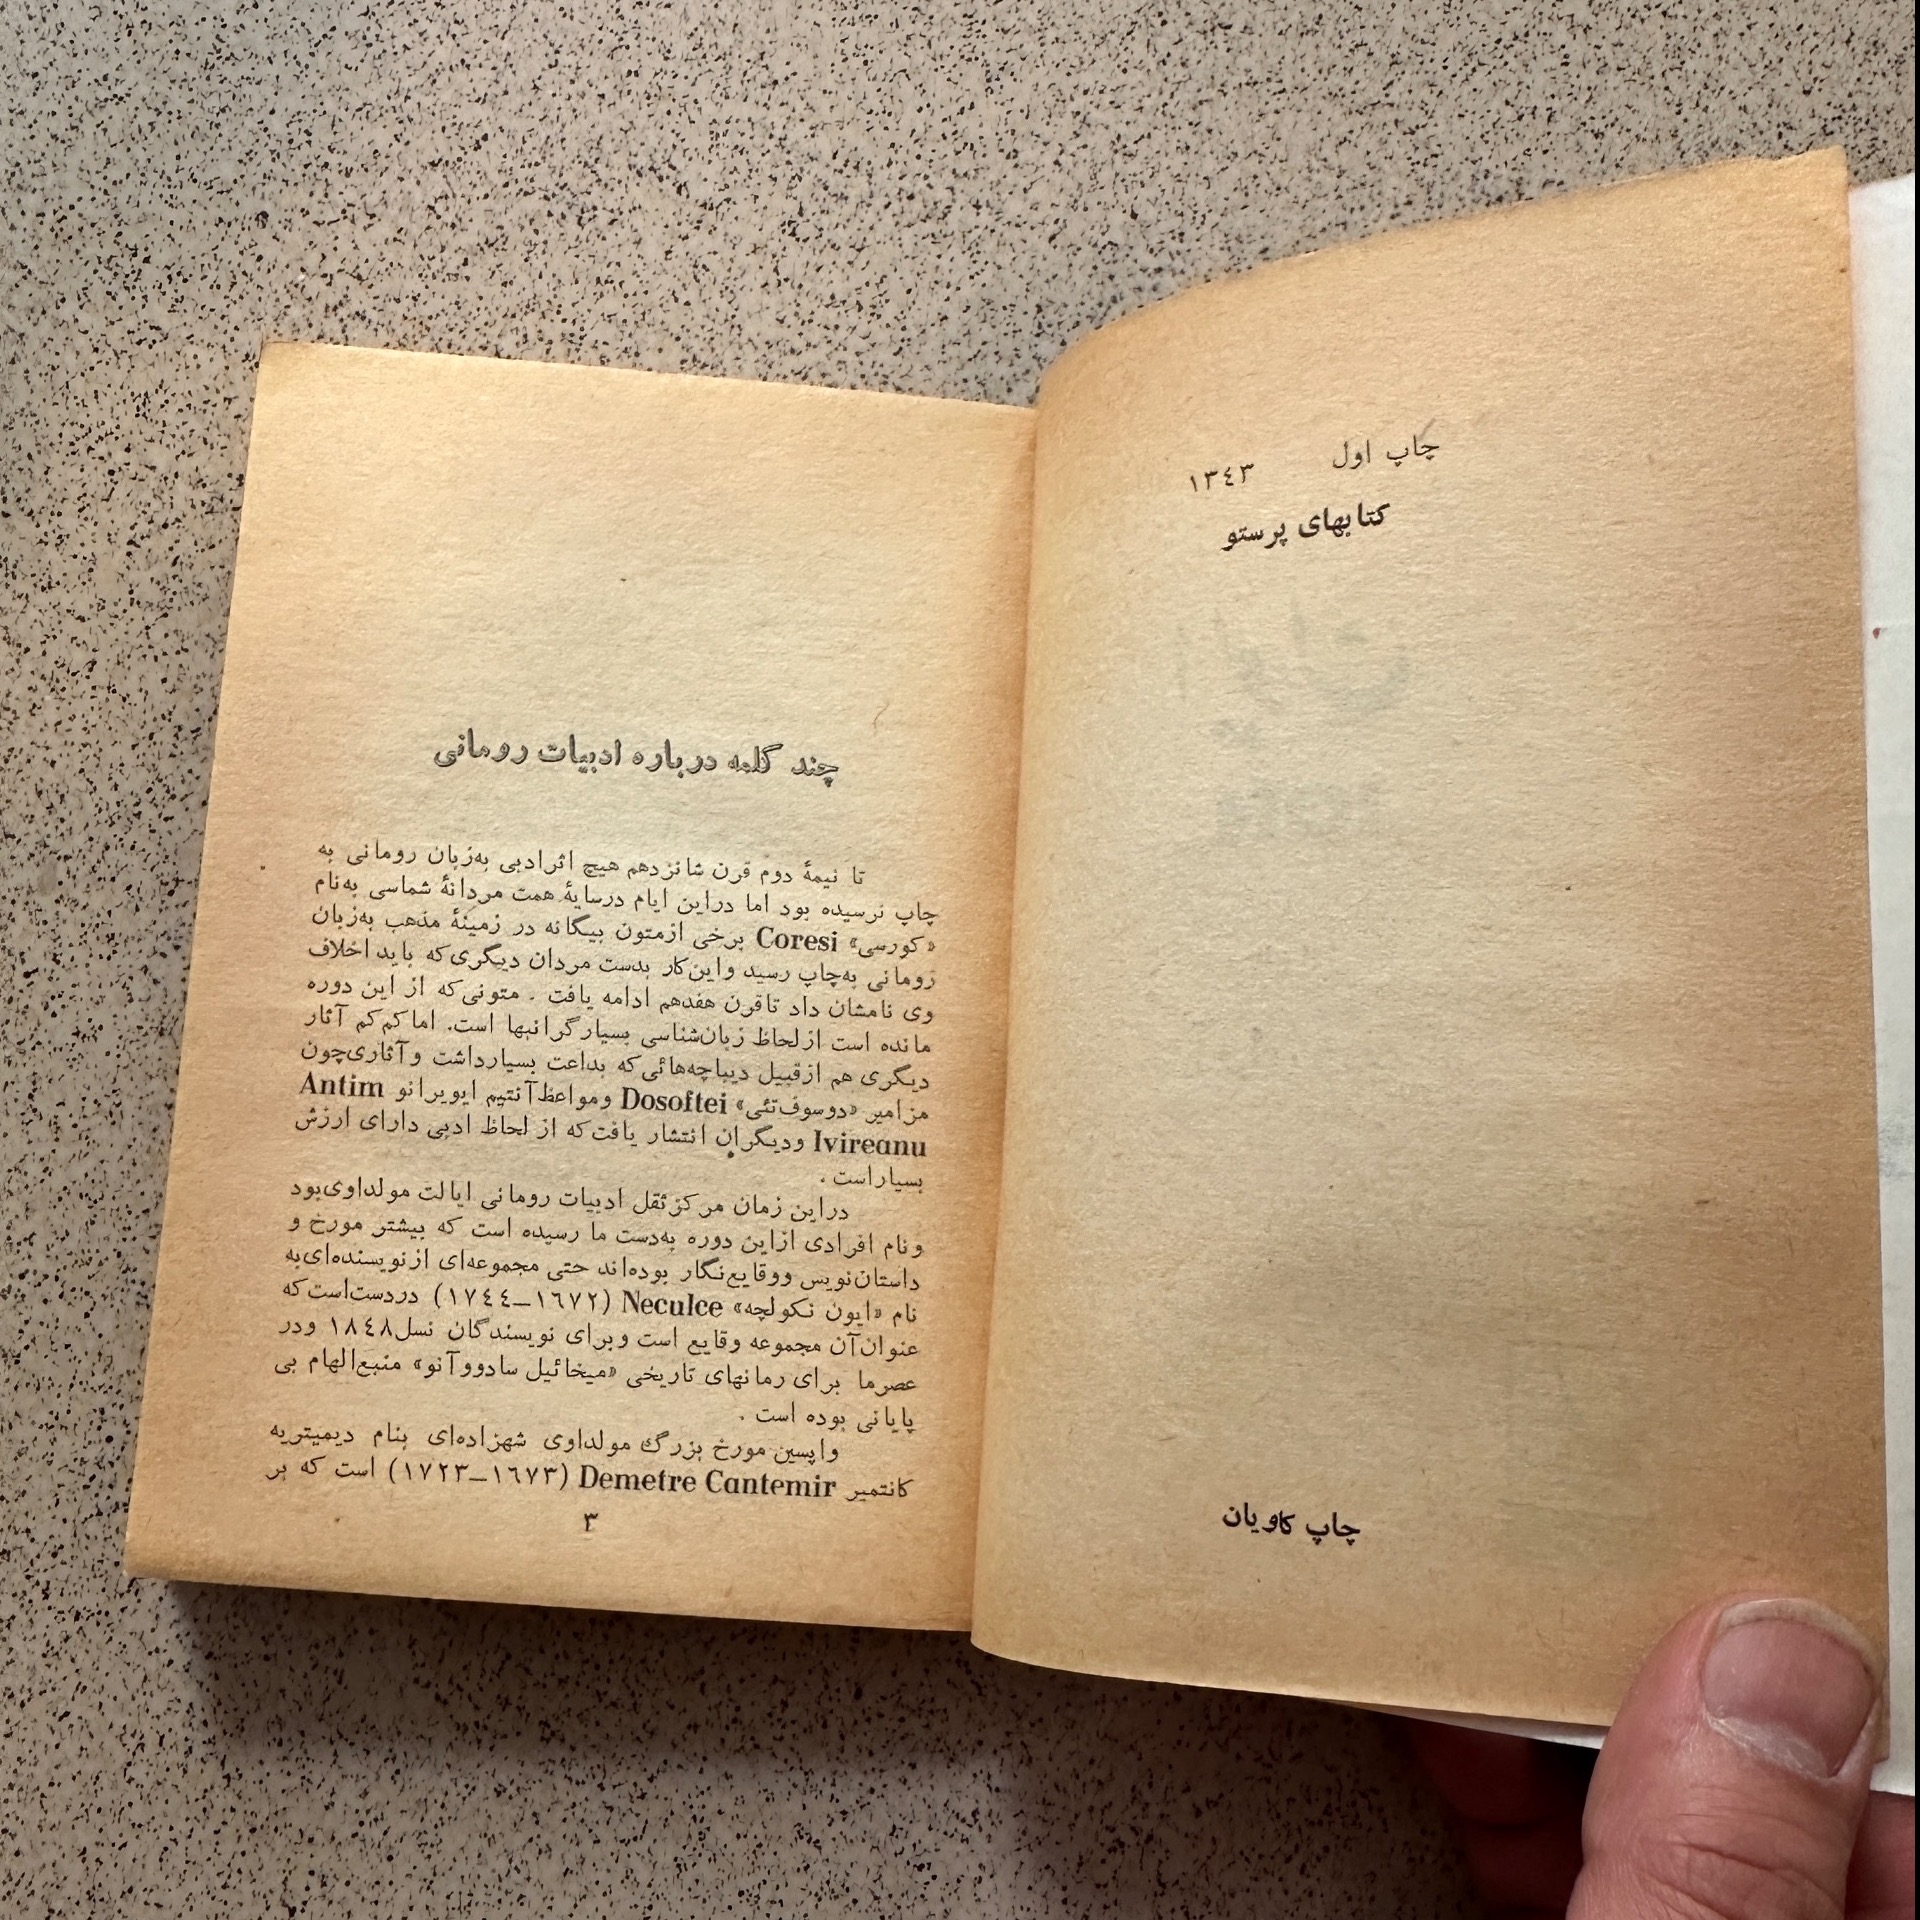 چاپ اول ۱۳٤۳
کتابهای پرستو
چاپ کاویان
چند کلمه درباره ادبیات رومانی
تا نیمهٔ دوم قرن شانزدهم هیچ اثرادبی به‌زبان رومانی به
چاپ نرسیده بود اما دراین ایام درسایهٔ همت مردانهٔ شماسی به‌نام
«کورسی» Coresi برخی ازمتون بیگانه در زمینهٔ مذهب به‌زبان
رومانی به‌چاپ رسید واین‌کار بدست مردان دیگری‌که باید اخلاف
وی نامشان داد تاقرن هفدهم ادامه یافت . متونی‌که از این دوره
مانده است ازلحاظ زبان‌شناسی بسیارگرانبها است. اماکم‌کم آثار
دیگری هم ازقبیل دیباچه‌هائی‌که بداعت بسیارداشت وآثاری‌چون
مزامیر «دوسوف‌تئی» Dosoftei ومواعظ‌آنتیم ایویرانو Antim
Ivireanu ودیگران انتشار یافت‌که از لحاظ ادبی دارای ارزش
بسیاراست .
دراین زمان مرکزثقل ادبیات رومانی ایالت مولداوی‌بود
ونام افرادی ازاین دوره به‌دست ما رسیده است که بیشتر مورخ و
داستان‌نویس ووقایع‌نگار بوده‌اند حتی مجموعه‌ای ازنویسنده‌ای‌به
نام «ایون نکولچه» Neculce (۱٦۷۲–۱۷٤٤) دردست‌است‌که
عنوان‌آن مجموعه وقایع است وبرای نویسندگان نسل۱۸٤۸ ودر
عصرما برای رمانهای تاریخی «میخائیل سادووآنو» منبع‌الهام بی
پایانی بوده است .
واپسین مورخ بزرگ مولداوی شهزاده‌ای بنام دیمیتریه
کانتمیر Demetre Cantemir (۱٦۷۳–۱۷۲۳) است که بر
۳